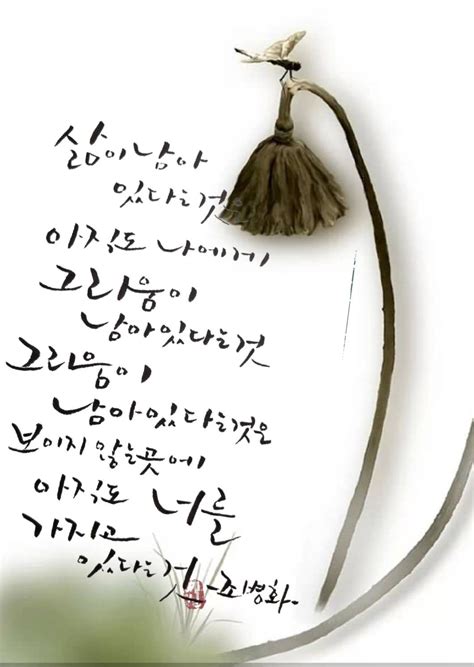 삶이 남아
있다는 것은
아직도 나에게
그리움이
남아 있다는 것
그리움이
남아 있다는 것은
보이지 않는 곳에
아직도 너를
가지고
있다는 것 - 조병화.